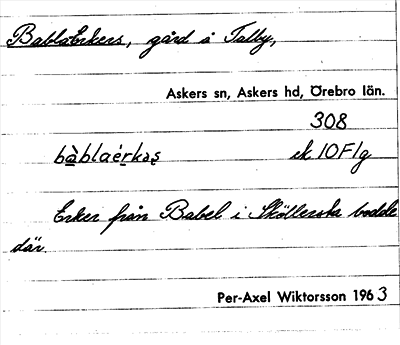 BablaErkers, gård å Talby,
Askers sn, Askers hd, Örebro län.
308
bàblaérkas ek. 10 F/g
Erker från Babel i Sköllersta bodde
där.
Per-Axel Wiktorsson 1963